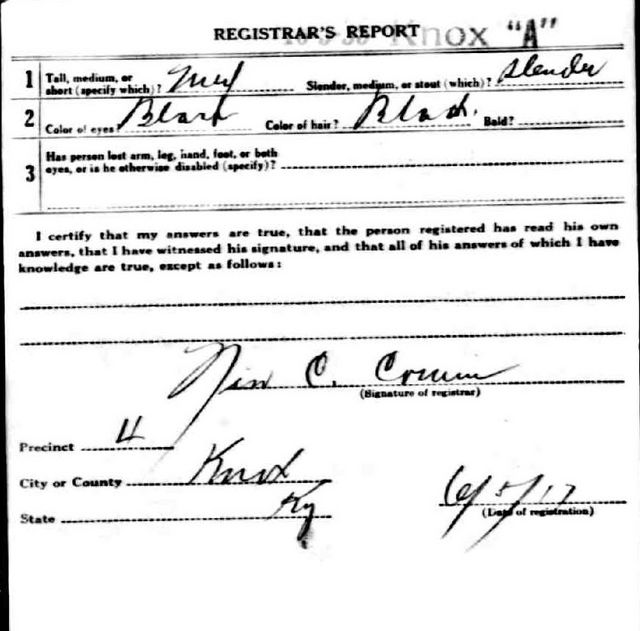 REGISTRAR'S REPORT
Knox "A"
1 Tall, medium, or short (specify which)? Med Slender, medium, or stout (which)? Slender
2 Color of eyes? Black Color of hair? Black. Bald?
3 Has person lost arm, leg, hand, foot, or both
eyes, or is he otherwise disabled (specify)?
I certify that my answers are true, that the person registered has read his own
answers, that I have witnessed his signature, and that all of his answers of which I have
knowledge are true, except as follows:
C.
(Signature of registrar)
Precinct 4
City or County Knox
State Ky 6/5/17
(Date of registration)